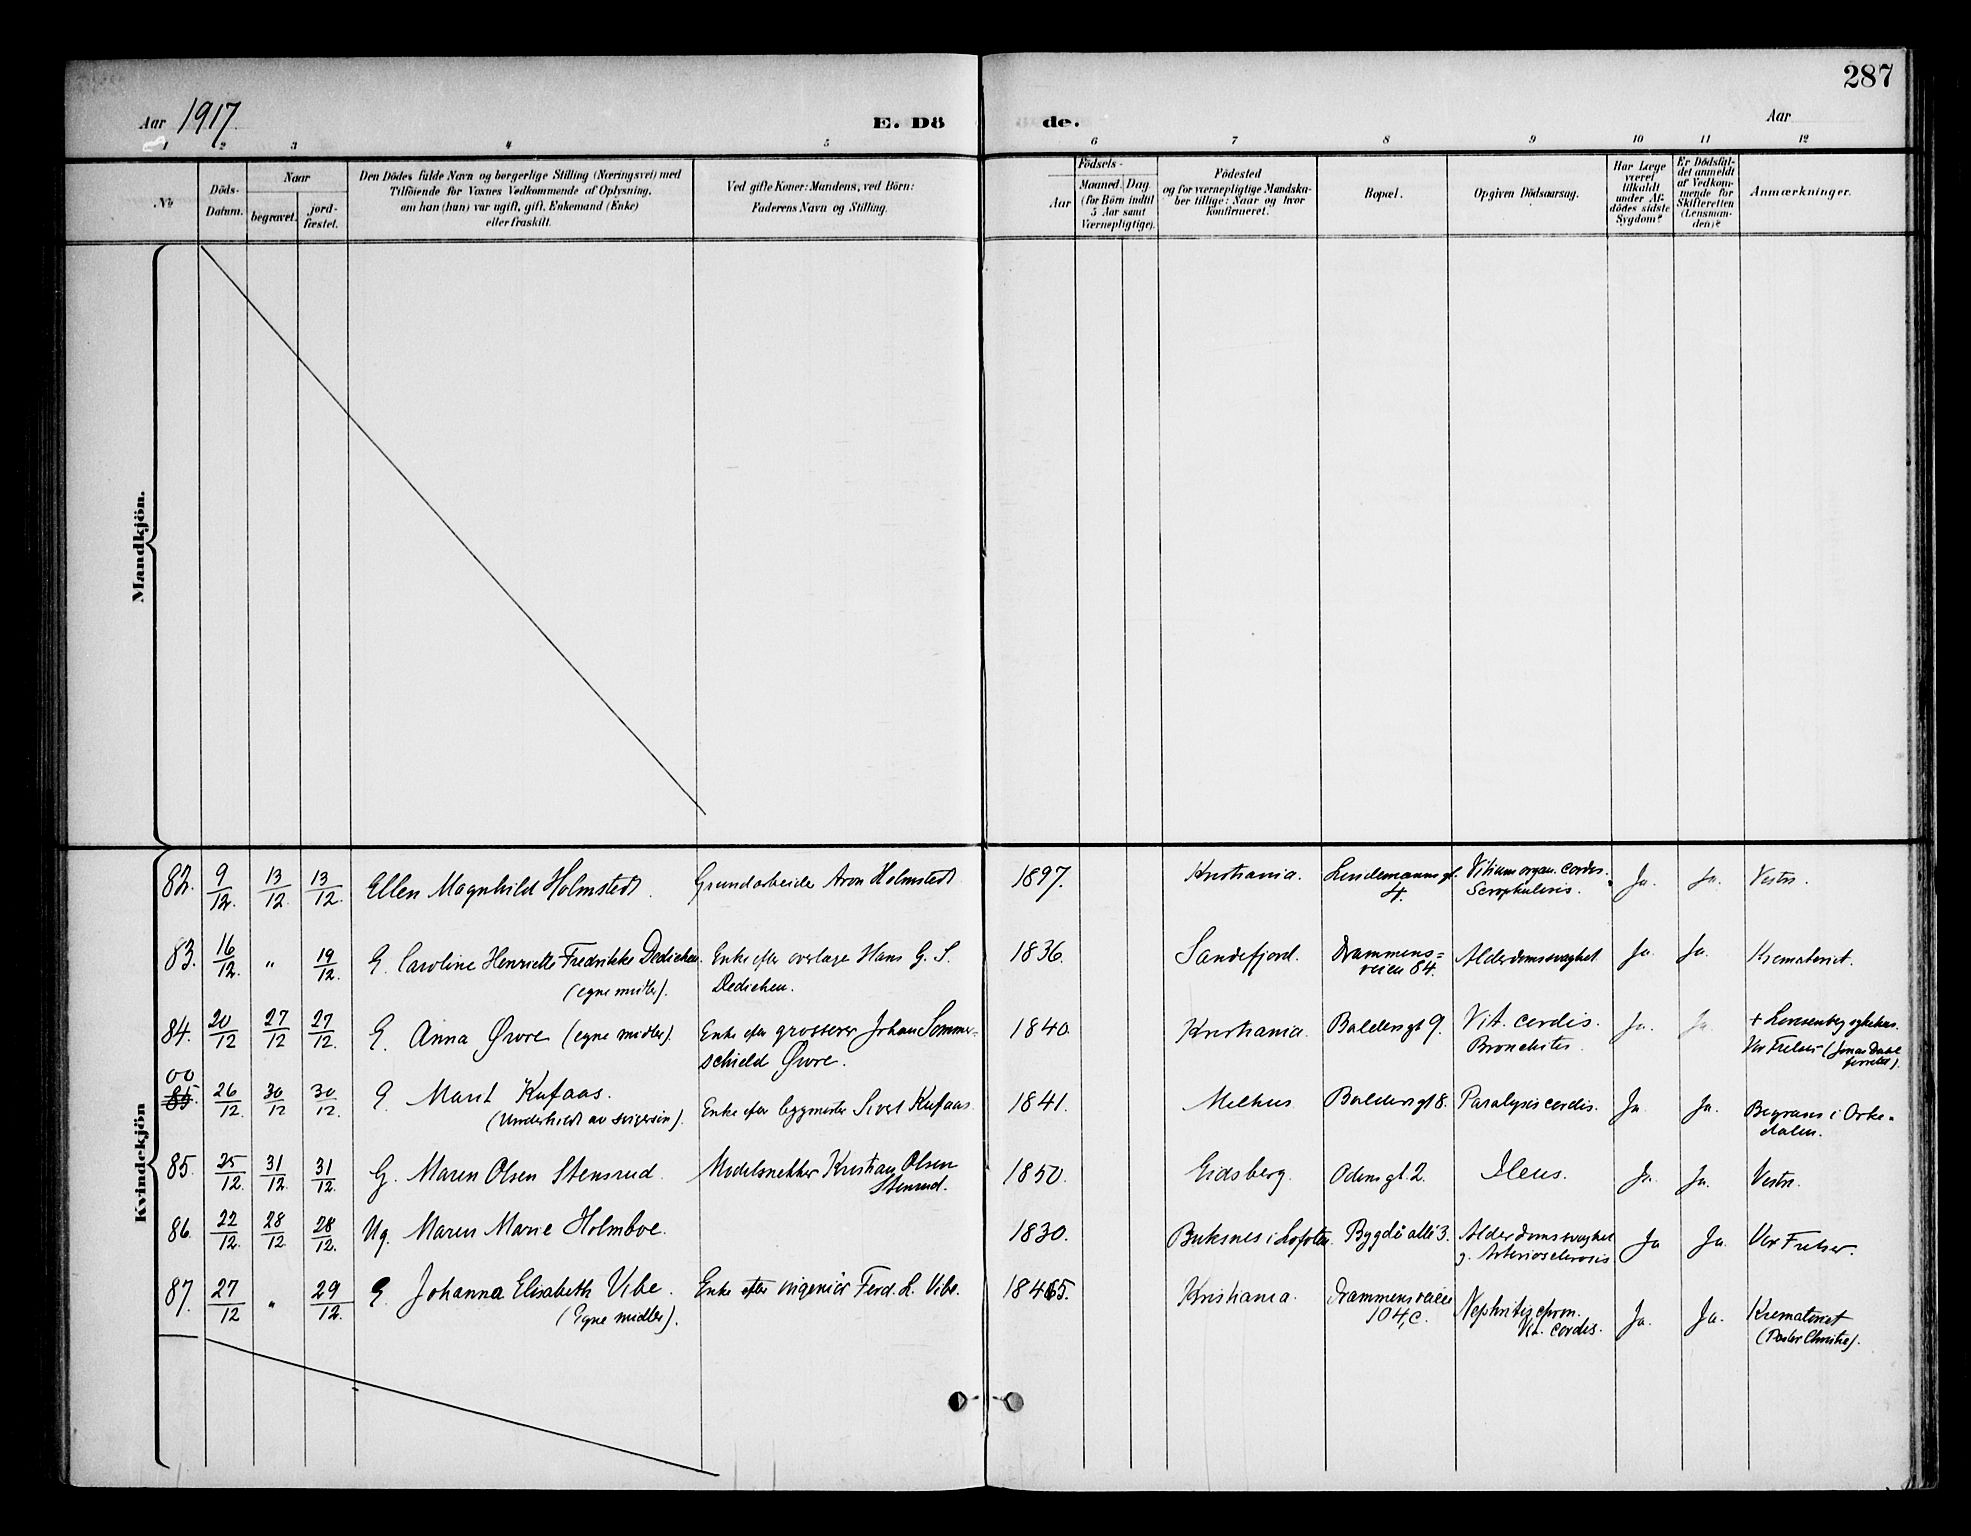 287
Aar 1917.
E. Dö
de.
Aar
1 2 3 4 5 6 7 8 9 10 11 12
No
Döds-
Datum.
Naar
begravet.
jord-
fæstet.
Den Dödes fulde Navn og borgerlige Stilling (Næringsvei) med
Tilföiende for Voxnes Vedkommende af Oplysning,
om han (hun) var ugift, gift, Enkemand (Enke)
eller fraskilt.
Ved gifte Koner: Mandens, ved Börn:
Faderens Navn og Stilling.
Födsels-
Aar
Maaned. Dag
(for Börn indtil
5 Aar samt
Værnepligtige).
Födested
og for værnepligtige Mandska-
ber tillige: Naar og hvor
konfirmeret.
Bopæl.
Opgiven Dödsaarsag.
Har Læge
været
tilkaldt
under Af-
dödes sidste
Sygdom?
Er Dödsfal-
det anmeldt
af Vedkom-
mende for
Skifteretten
(Lensman-
den)?
Anmærkninger.
Mandkjön.
Kvindekjön
82. 9/12. 13/12 13/12. Ellen Magnhild Holmstedt. Grundarbeider Aron Holmstedt 1897. Kristiania. Lindemannsgt. Vitium organ. cordis. Ja. Ja. Vestre.
4. Scrophulosis.
83. 16/12. " 19/12. E. Caroline Henriette Fredrikke Dedichen. Enke efter overlæge Hans G. S. 1836. Sandefjord. Drammens= Alderdomssvaghet Ja. Ja. Krematoriet.
(egne midler). Dedichen. veien 84.
84. 20/12 27/12 27/12. E. Anna Øvre (egne midler). Enke efter grosserer Johan Sommer- 1840. Kristiania. Baldersgt 9. Vit. cordis. Ja. Ja. + Lovisenberg sykehus.
schield Øvre. Bronchitis. Vor Frelser (Jonas Dahl
forrettet).
00
85. 26/12. 30/12 30/12. E. Marit Kufaas. Enke efter byggmester Sivert Kufaas. 1841. Melhus Baldersgt 8. Paralysis cordis. Ja. Ja. Begraves i Orke-
(Underholdt av svigersøn). dalen.
85. 25/12. 31/12. 31/12. G. Maren Olsen Stensrud. Modelsnekker Kristian Olsen 1850. Eidsberg. Odinsgt. 2. Ileus. Ja. Ja. Vestre.
Stensrud.
86. 22/12. 28/12. 28/12. Ug. Maren Marie Holmboe. 1830. Buksnes i Lofoten. Bygdø allé 3. Alderdomssvaghet Ja Ja. Vor Frelser.
g. Arteriosclerosis
87. 27/12 " 29/12. E. Johanna Elisabeth Vibe. Enke efter ingeniør Ferd. L. Vibe. 1845. Kristiania. Drammensveien Nephritis chron. Ja. Ja. Krematoriet
(Egne midler). 104,c. Vit. cordis. (Pastor Christie).